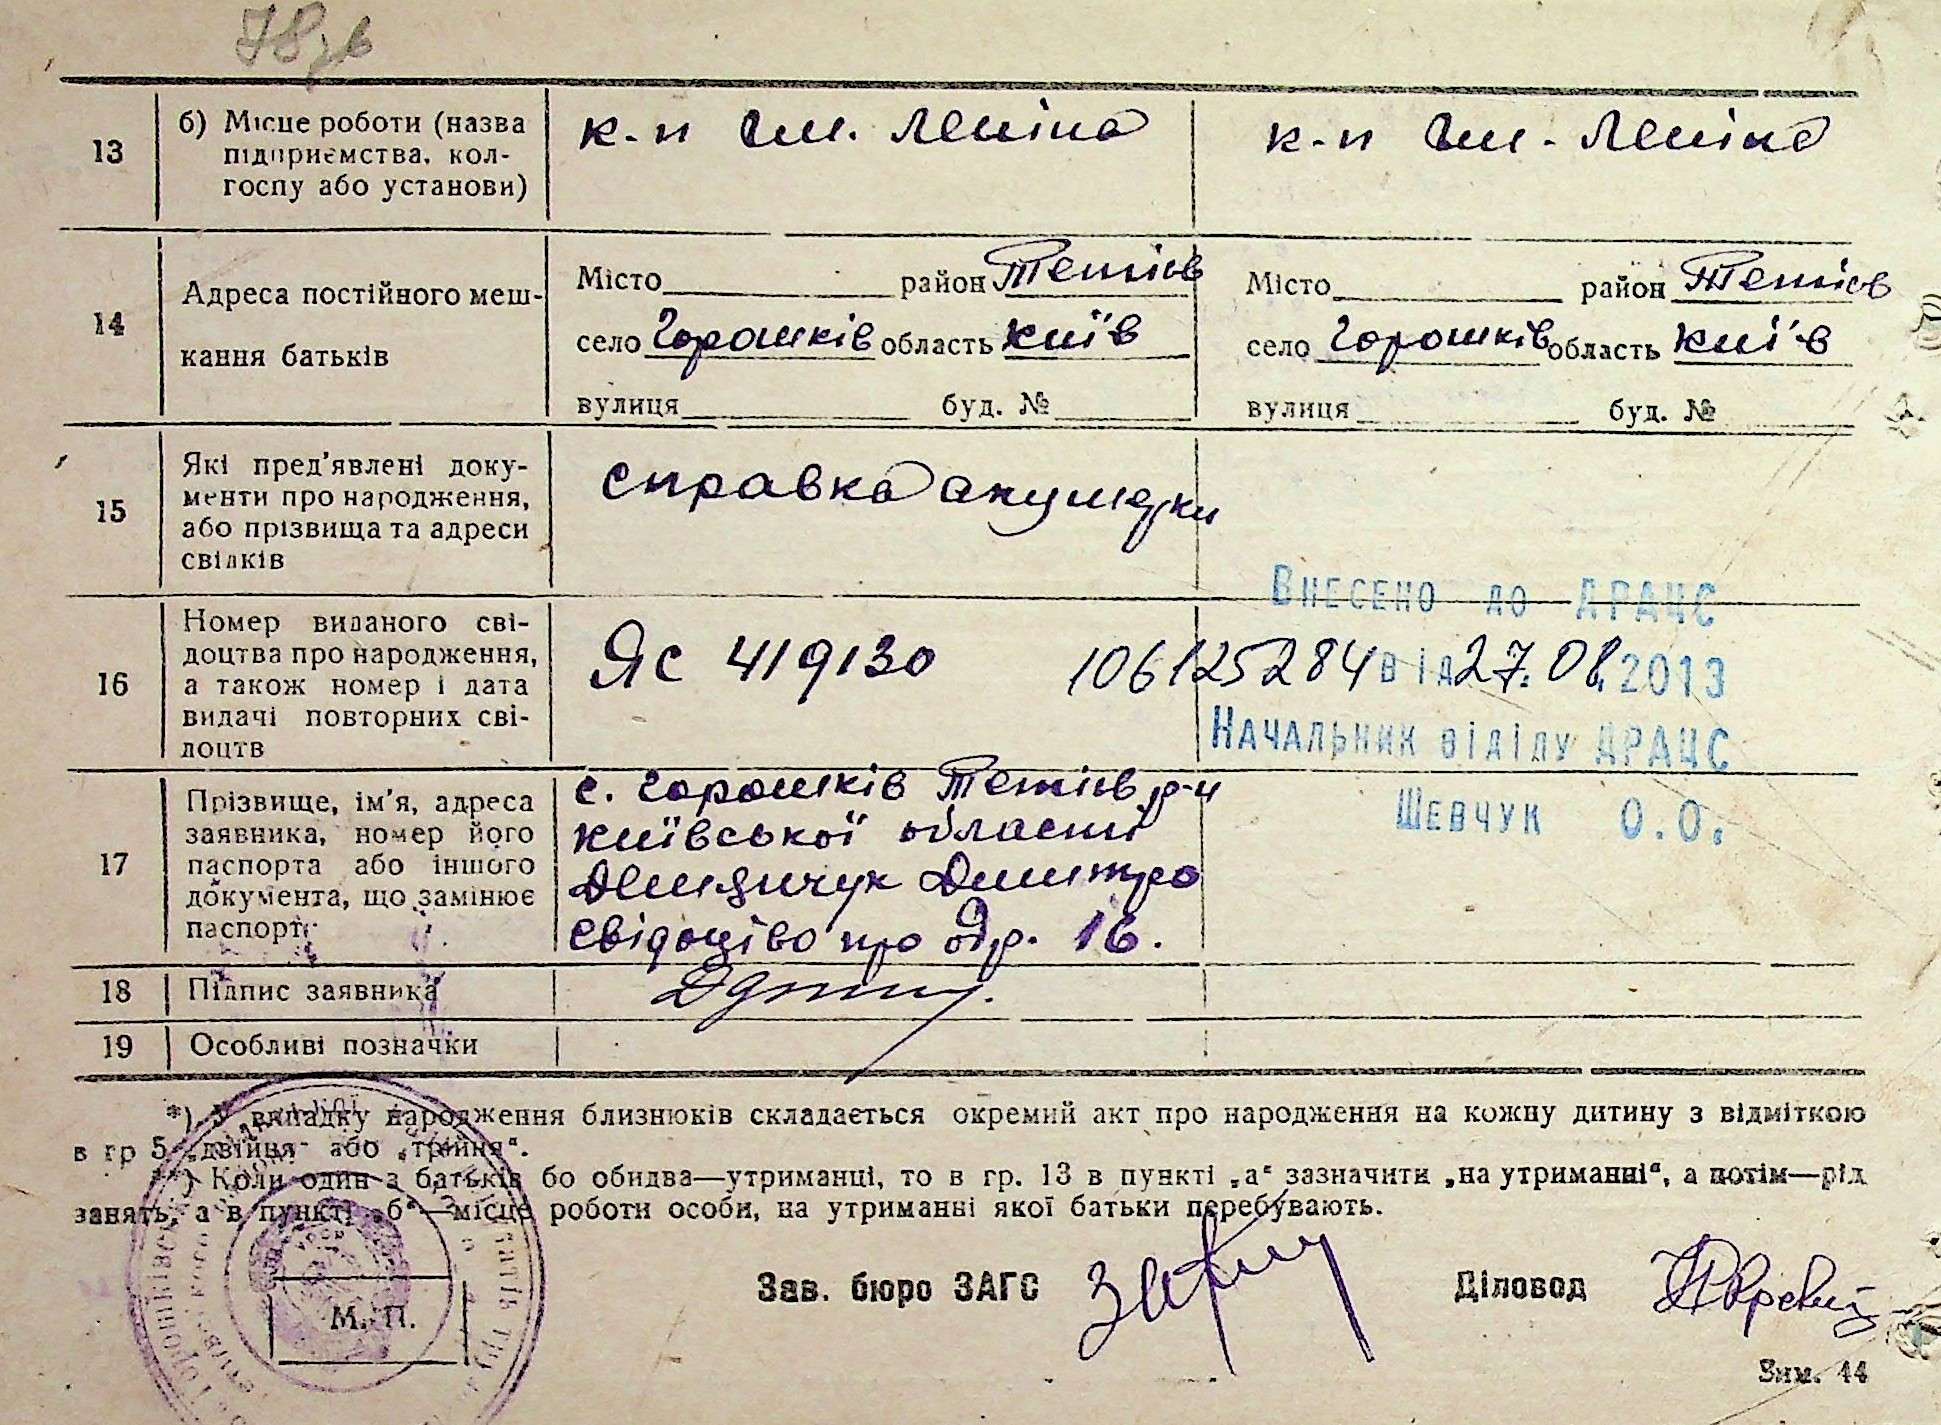 13
б) Місце роботи (назва
підприємства, кол-
госпу або установи)
к-п Ім. Леніна
к-п Ім. Леніна
14
Адреса постійного меш-
кання батьків
Місто район Тетіїв
село Горошків область Київ
вулиця буд. №
Місто район Тетіїв
село Горошків область Київ
вулиця буд. №
15
Які пред'явлені доку-
менти про народження,
або прізвища та адреси
свідків
справка акушерки
16
Номер виданого сві-
доцтва про народження,
а також номер і дата
видачі повторних сві-
доцтв
ЯС 419130
Внесено до ДРАЦС
106125284 від 27.08.2013
Начальник відділу ДРАЦС
Шевчук О.О.
17
Прізвище, ім'я, адреса
заявника, номер його
паспорта або іншого
документа, що замінює
паспорт
с. Горошків Тетіїв р-н
Київської області
Демидчук Дмитро
свідоцтво про одр. 16.
18
Підпис заявника
19
Особливі позначки
*) У випадку народження близнюків складається окремий акт про народження на кожну дитину з відміткою
в гр 5 „двійня" або „трійня".
) Коли один з батьків бо обидва—утриманці, то в гр. 13 в пункті „а" зазначити „на утриманні", а потім—рід
занять, а в пункті „б"—місце роботи особи, на утриманні якої батьки перебувають.
Зав. бюро ЗАГС
Діловод
М. П.
Зим. 44